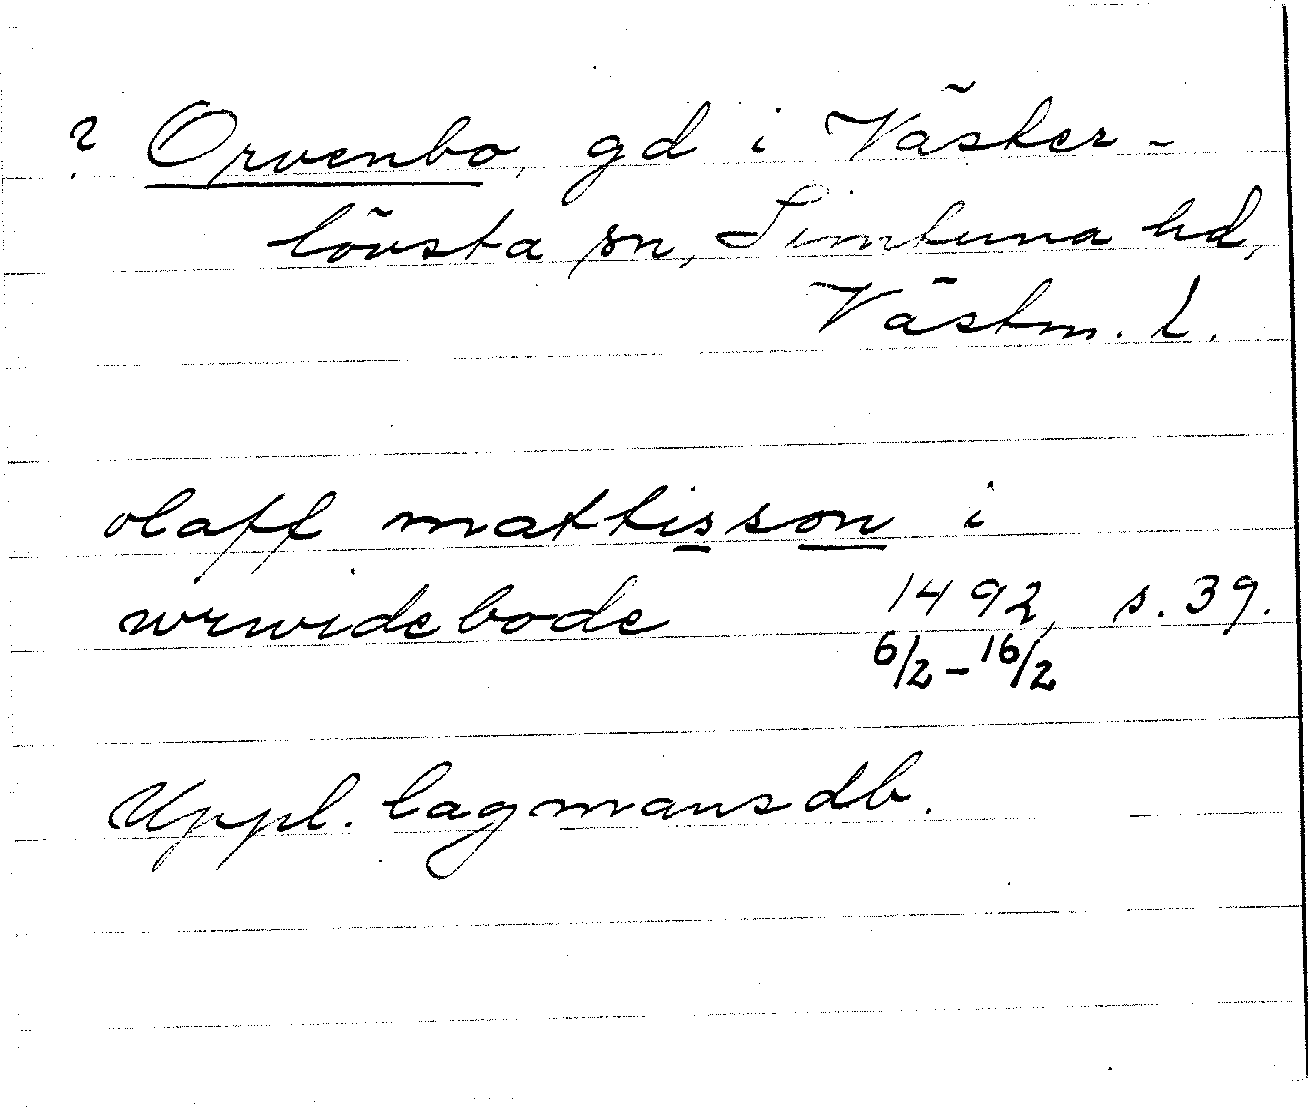 ? Orvenbo, gd i Väster-
lövsta sn, Simtuna hd,
Västm. l.
olaff mattisson i
wrwidebode 1492, s. 39.
6/2 - 16/2
Uppl. lagmansdb.